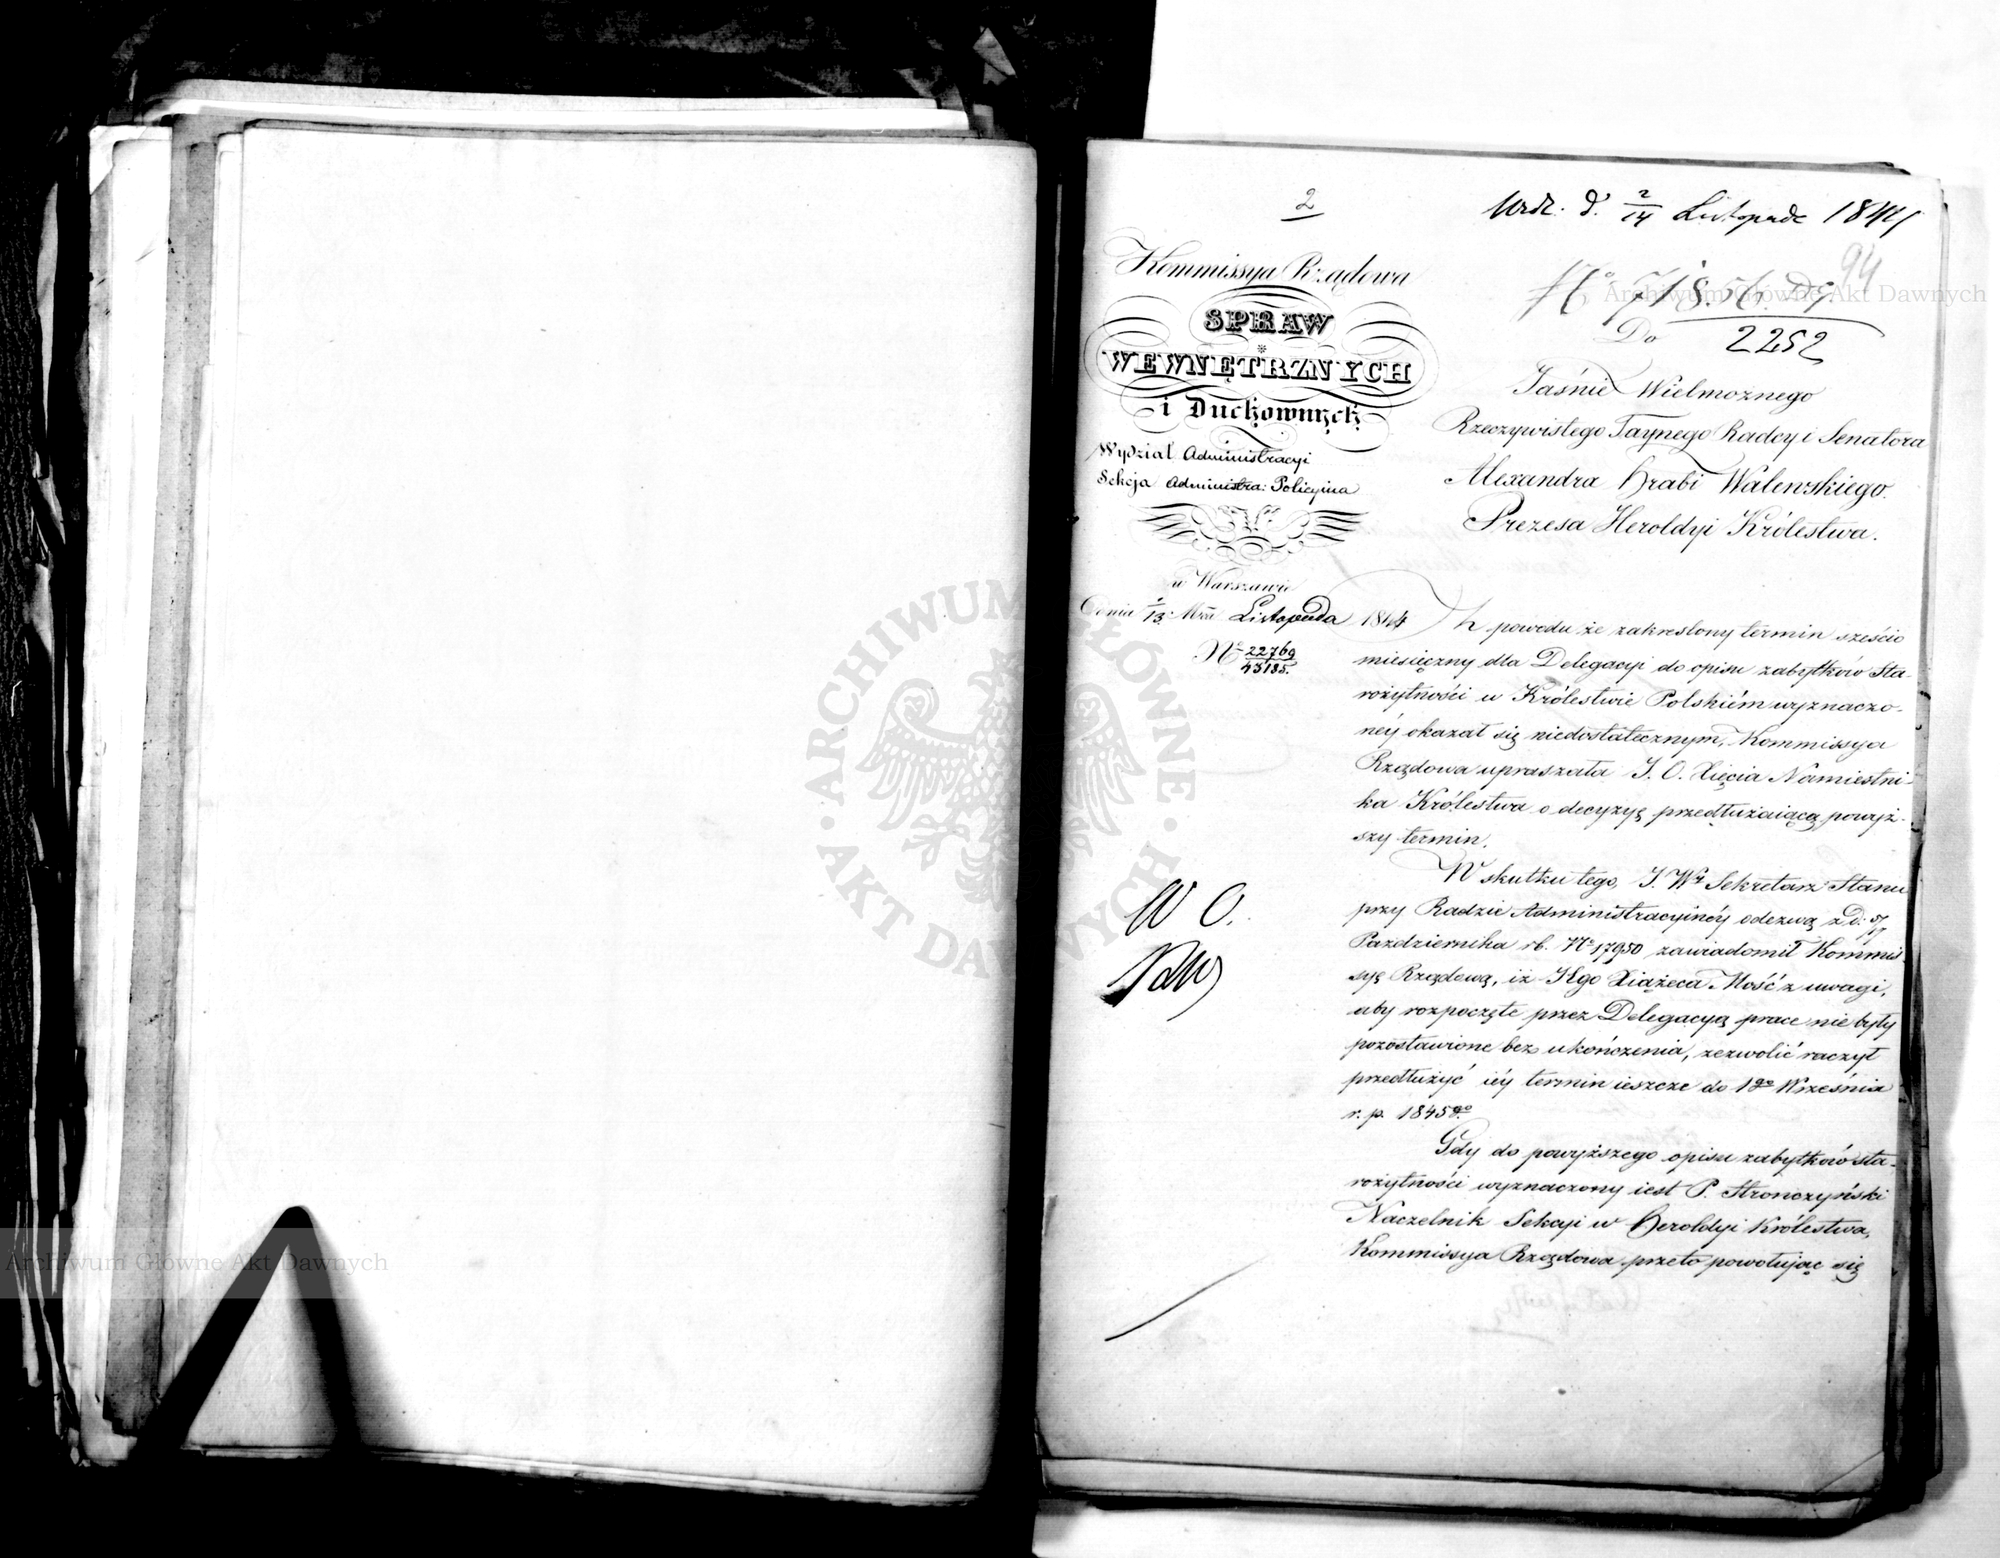 2
wdr. d. 2/14 Listopada 1844
94
Nº 718.56. D9
2252
Kommissya Rządowa
SPRAW
WEWNĘTRZNYCH
i Duchownych
Wydział Administracyi
Sekcja Administra: Policyina
w Warszawie
dnia 1/13 Mca Listopada 1844
Nº 22769/43185.
Do
Jaśnie Wielmożnego
Rzeczywistego Taynego Radcy i Senatora
Alexandra Hrabi Walewskiego.
Prezesa Heroldyi Królestwa.
Z powodu że zakreslony termin sześcio
miesięczny dla Delegacyi do opisu zabytków Sta-
rożytności w Królestwie Polskiém wyznaczo-
néy okazał się niedostatecznym, Kommissya
Rządowa upraszała J. O. Xięcia Namiestni-
ka Królestwa o decyzyę przedłużaiącą powyż-
szy termin.
W skutku tego, J. W. Sekretarz Stanu
przy Radzie Administracyinéy odezwą z D. 5/17
Października rb. Nº 17950 zawiadomił Kommis-
syę Rządową, iż Jego Xiążęca Mość z uwagi,
aby rozpoczęte przez Delegacyą prace nie były
pozostawione bez ukończenia, zezwolić raczył
przedłużyć iéy termin ieszcze do 1go Września
r. p. 1845go
Gdy do powyższego opisu zabytków sta-
rożytności wyznaczony iest P. Stronczyński
Naczelnik Sekcyi w Heroldyi Królestwa,
Kommissya Rządowa przeto powołując się
W O.
Archiwum Główne Akt Dawnych
Archiwum Główne Akt Dawnych
ARCHIWUM GŁÓWNE · AKT DAWNYCH ·